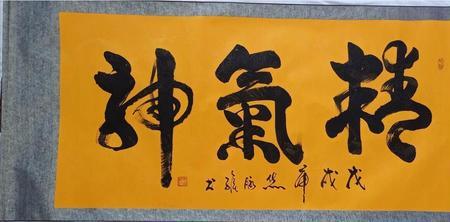 精氣神
戊戌年 书